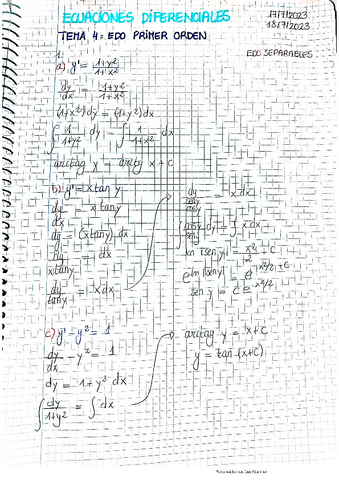 ECUACIONES DIFERENCIALES
17/7/2023
18/7/2023
TEMA 4: EDO PRIMER ORDEN
EDO SEPARABLES
1.
a) y' = 1+y²/1+x²
dy/dx = 1+y²/1+x²
(1+x²)dy = (1+y²)dx
∫ 1/1+y² dy ∫ 1/1+x² dx
arctag y = arctg x + c
b) y' = x tan y
dy/dx = x tan y
dy = (x tan y) dx
dy/x tan y = dx
dy/tan y = x dx
dy/sen y/cos y = x dx
∫ cos y/sen y dy = ∫ x dx
ln |sen y| = x²/2 + c
e^ln|sen y| = e^x²/2+c
sen y = c e^x²/2
c) y' - y² = 1
dy/dx - y² = 1
dy = 1 + y² dx
∫ dy/1+y² = ∫ dx
arctag y = x + c
y = tan (x+c)